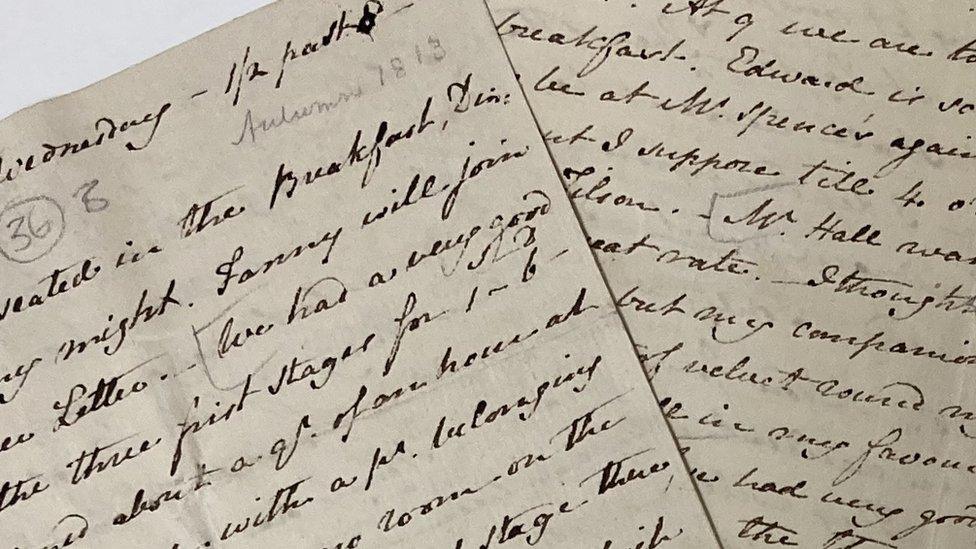 Wednesday - 1/2 past 8 -
Autumn 1813
36 B
seated in the Breakfast, Din:
might. Fanny will join
Letter. - We had a very good
s d
the three first stages for 1 - 6 -
about a qr. of an hour at
with a pr. belonging
room on the
stage then
. At 9 we are to
breakfast. Edward is
be at Mr. Spence's again
I suppose till 4.
Tilson. - Mr. Hall was
rate. - I thought
but my companion
of velvet round my
in my favour
had very good
the